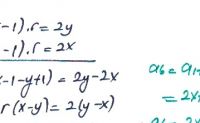 -1).r = 2y
-1).r = 2x
x-1-y+1) = 2y-2x
r(x-y) = 2(y-x)
a₆ = a₁
= 2x